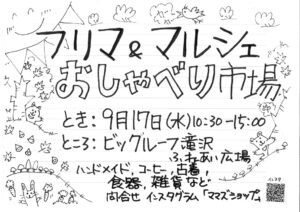 フリマ&マルシェ
おしゃべり市場
とき:9月17日(水)10:30-15:00
ところ:ビッグルーフ滝沢
ふれあい広場
ハンドメイド、コーヒー、古着、
食器、雑貨など
問合せ インスタグラム「ママズショップ」
インスタ